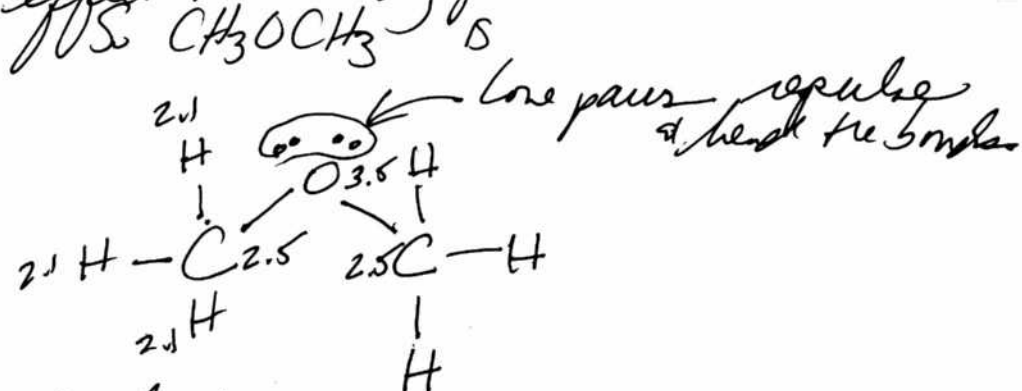 CH3OCH3
Lone pairs repulse
& bend the bonds
2.1
H
O 3.5 H
2.1 H - C 2.5 2.5 C - H
2.1 H
H